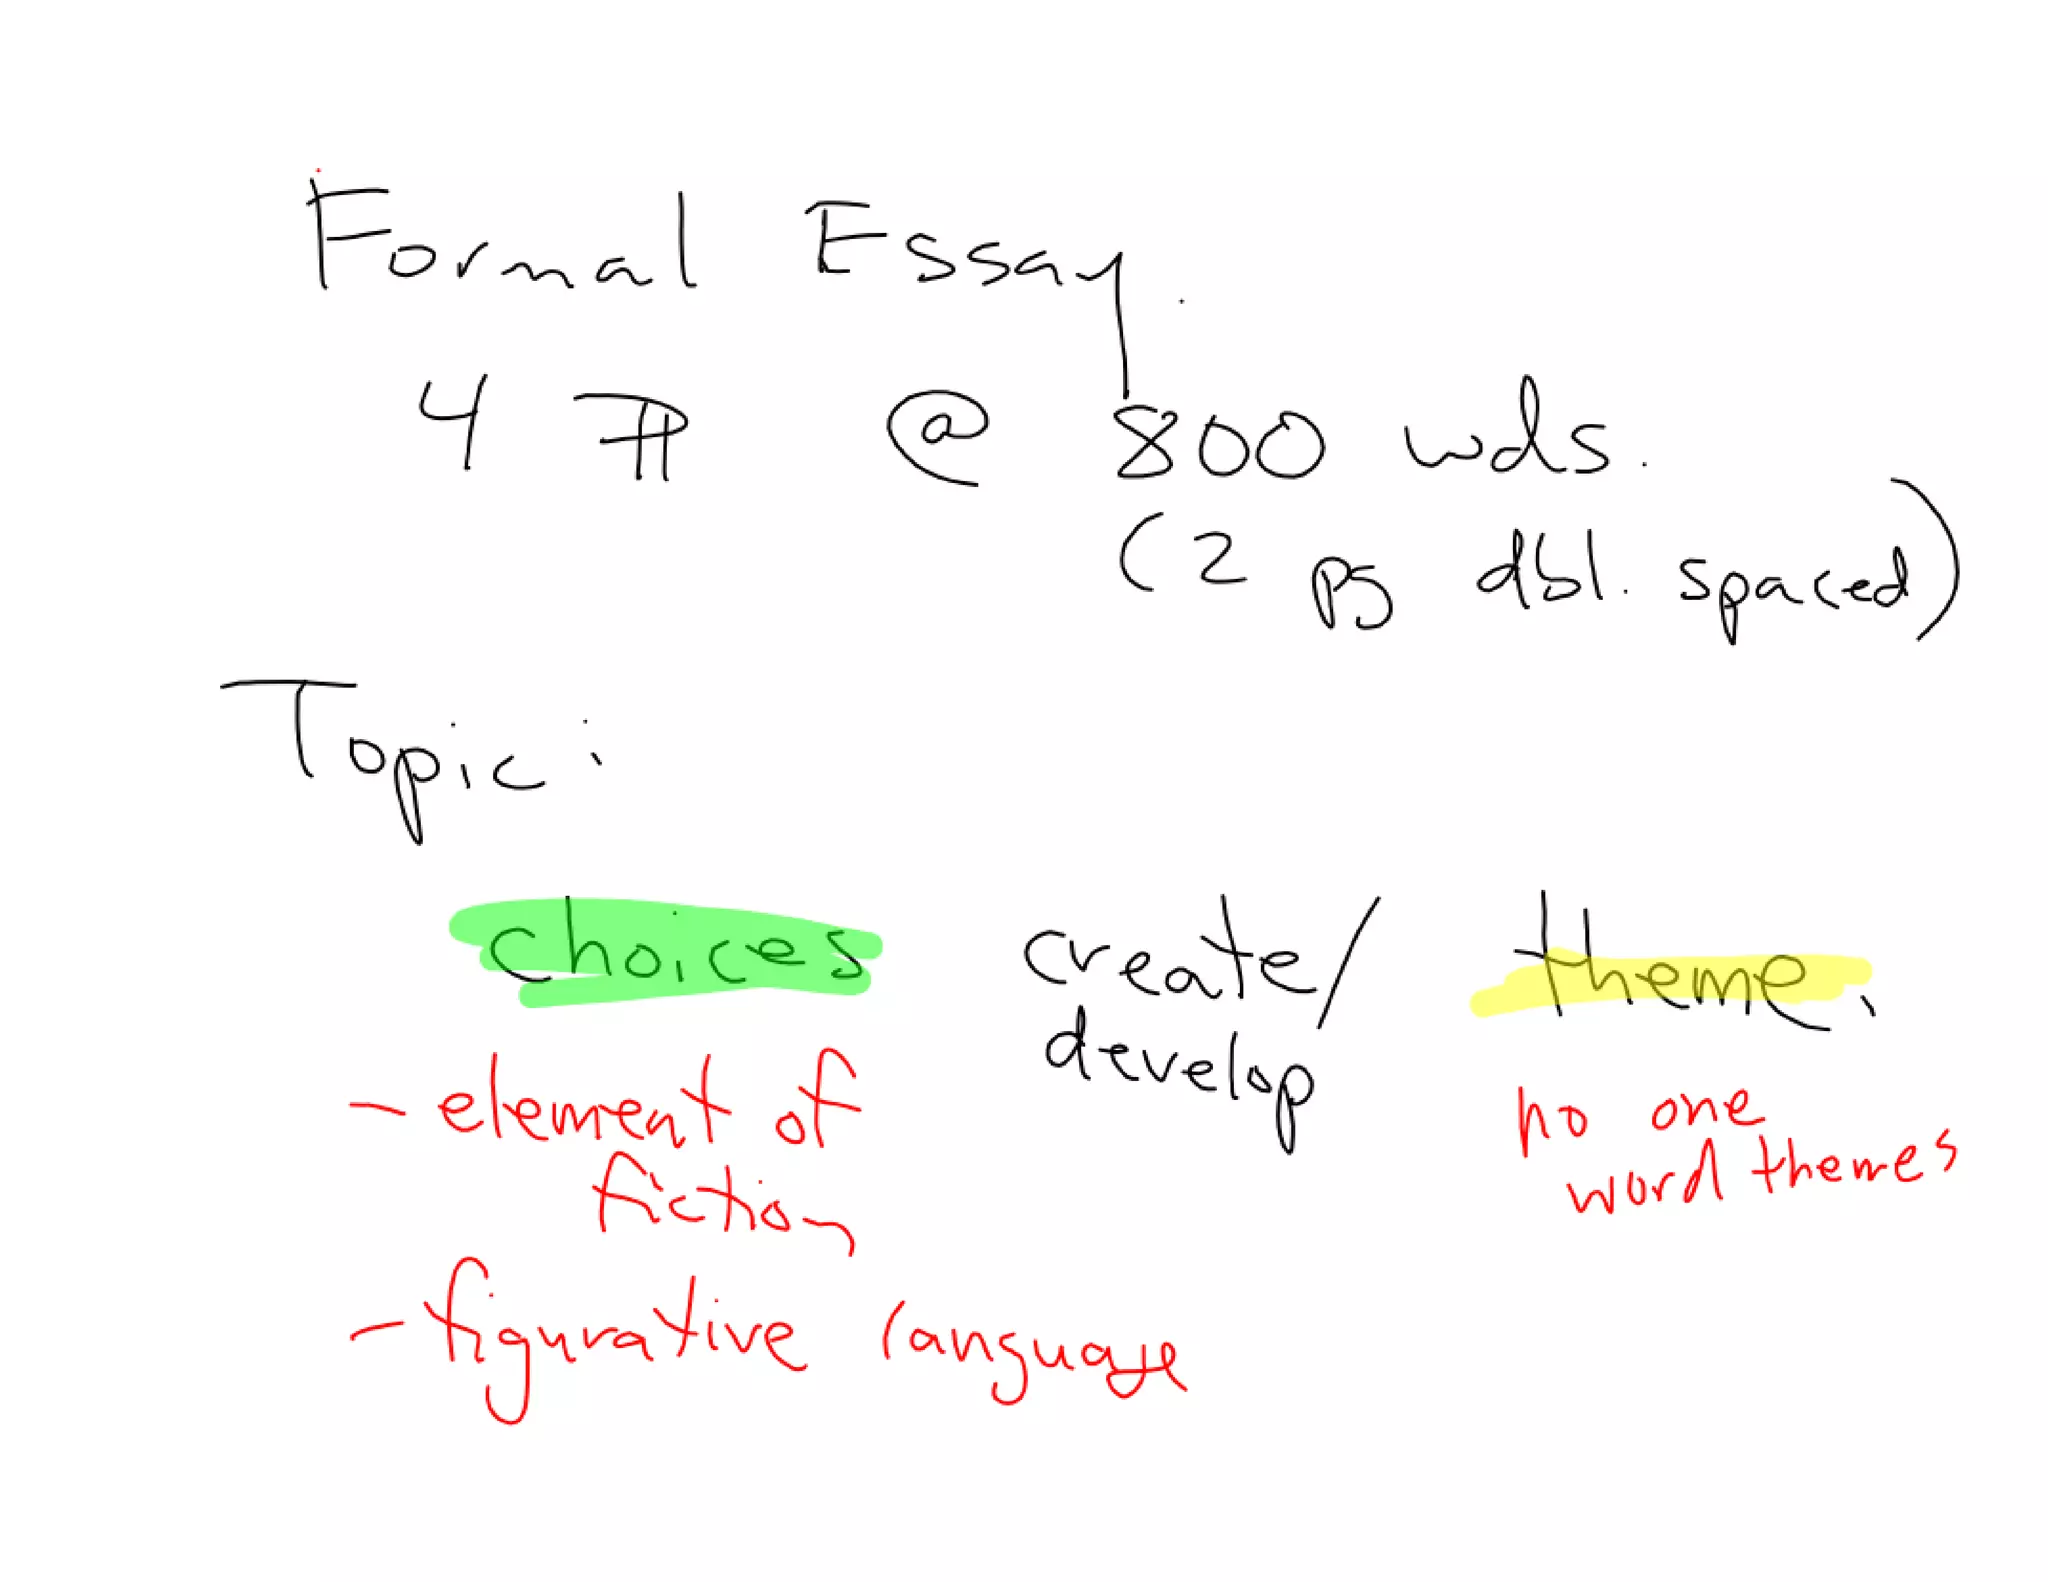 Formal Essay.
4 ¶ @ 800 wds.
(2 pg dbl. spaced)
Topic:
choices create/ theme.
develop
- element of
fiction
no one
word themes
- figurative language